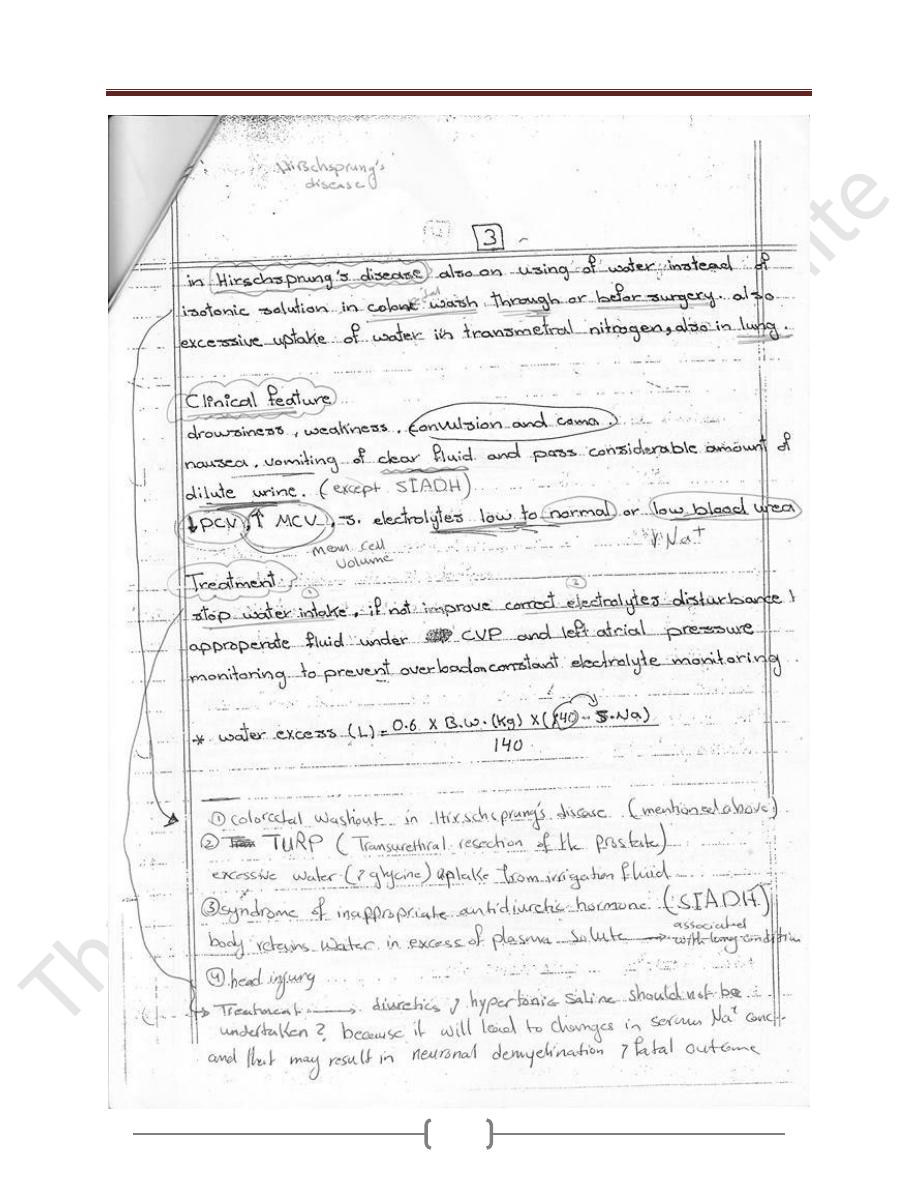 Hirschsprung's
disease
3
in Hirschsprung's disease also on using of water instead of
isotonic solution in colone wash through or befor surgery. also
excessive uptake of water in transmetral nitrogen, also in lung.
Clinical feature
drowsiness, weakness, convulsion and coma.
nausea, vomiting of clear fluid and pass considerable amount of
dilute urine. (except SIADH)
↓PCV, ↑ MCV, s. electrolytes low to normal or low blood urea
mean cell
volume
↓Na+
Treatment:
① ②
stop water intake, if not improve correct electrolytes disturbance,
approperate fluid under CVP and left atrial pressure
monitoring to prevent overload on constant electrolyte monitoring
* water excess (L) = 0.6 X B.W. (Kg) X (140 - S.Na)
140
① colorectal washout in Hirschsprung's disease (mentioned above)
② TURP (Transurethral resection of the prostate)
excessive water (? glycine) uptake from irrigation fluid
③ syndrome of inappropriate antidiuretic hormone (SIADH)
body retains water in excess of plasma solute → associated
with lung condition
④ head injury
Treatment → diuretics, hypertonic saline should not be
undertaken? because it will lead to changes in serum Na+ conc.
and that may result in neuronal demyelination, fatal outcome